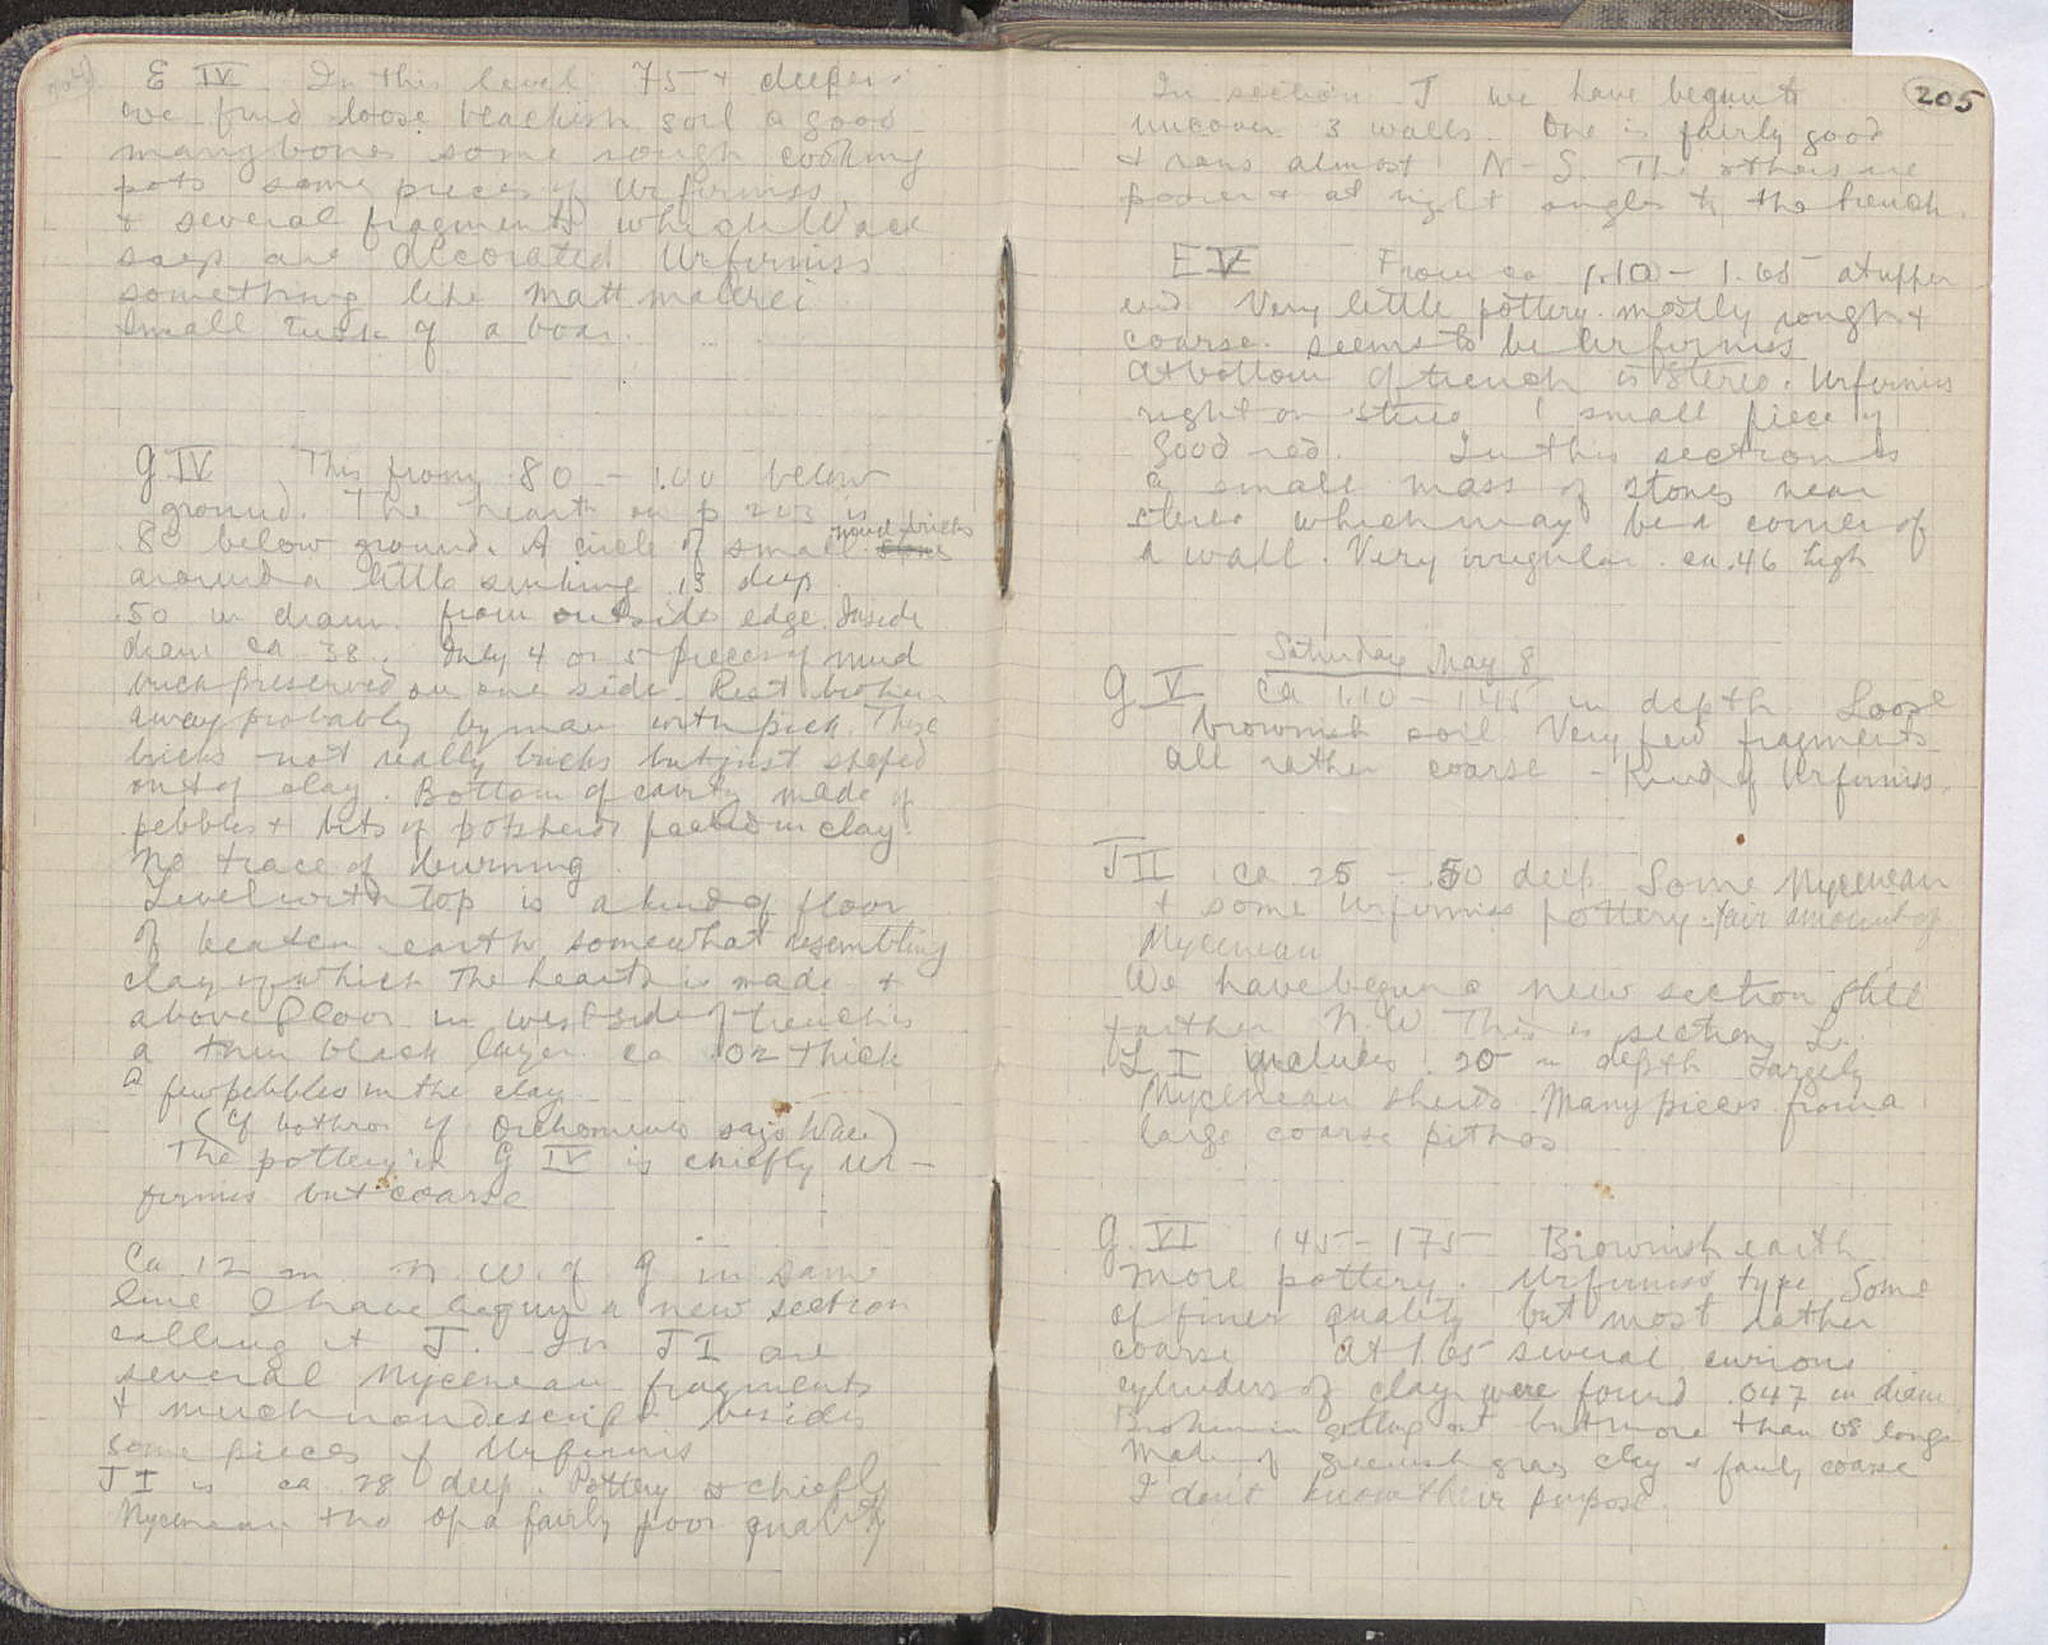 204
E IV In this level 75 + deeper
we find loose blackish soil a good
many bones some rough cooking
pots some pieces of Urfirniss
& several fragments which Wace
says are decorated Urfirniss
something like Mattmalerei
Small tusk of a boar.
G IV This from .80 - 1.00 below
ground. The hearth on p 203 is
.80 below ground. A circle of small mud bricks
around a little sinking .13 deep
.50 in diam. from outside edge. Inside
diam ca 38. Only 4 or 5 pieces of mud
brick preserved on one side. Rest broken
away probably by man with pick. These
bricks not really bricks but just shaped
out of clay. Bottom of cavity made of
pebbles + bits of potsherds packed in clay.
No trace of burning
Level with top is a kind of floor
of beaten earth somewhat resembling
clay of which the hearth is made +
above floor in west side of trench is
a thin black layer ca .02 thick
a few pebbles in the clay
(Cf bothroi of Orchomenos says Wace)
The pottery in G IV is chiefly Ur-
firniss but coarse
Ca 12 m N.W. of G in same
line I have begun a new section
calling it J. In J I are
several Mycenean fragments
+ much nondescript besides
some pieces of Urfirnis
J I is ca 28 deep. Pottery is chiefly
Mycenean tho of a fairly poor quality
205
In section J we have begun to
uncover 3 walls. One is fairly good
+ runs almost N-S. The others are
poorer & at right angles to the trench.
E V From ca 1.10 - 1.65 at upper
end Very little pottery. mostly rough +
coarse. seems to be Urfirniss
At bottom of trench is stereo. Urfirniss
right on stereo 1 small piece of
good red. In this section is
a small mass of stones near
stereo which may be a corner of
a wall. Very irregular. ca .46 high
Saturday May 8
G V ca 1.10 - 1.45 in depth Loose
brownish soil Very few fragments
all rather coarse - Kind of Urfirniss.
J II ca 25 - .50 deep Some Mycenean
+ some Urfirniss pottery. fair amount of
Mycenean
We have begun a new section still
farther N.W This is section L.
L I includes .20 in depth Largely
Mycenean sherds Many pieces from a
large coarse pithos
G VI 145 - 175 Brownish earth
more pottery. Urfirniss type Some
of finer quality but most rather
coarse At 1 65 several curious
cylinders of clay were found .047 in diam
Broken in getting out but more than 08 long
Made of greenish gray clay & fairly coarse
I dont know their purpose.